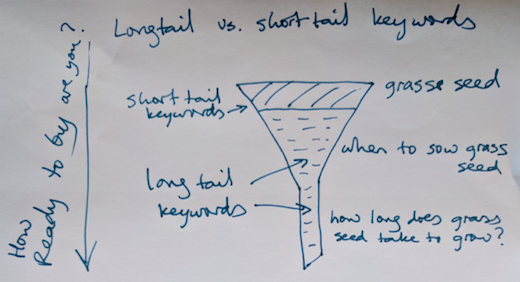 Longtail vs. short tail keywords
How
Ready to buy are you?
short tail
keywords
grasse seed
when to sow grass
seed
long tail
keywords
how long does grass
seed take to grow?